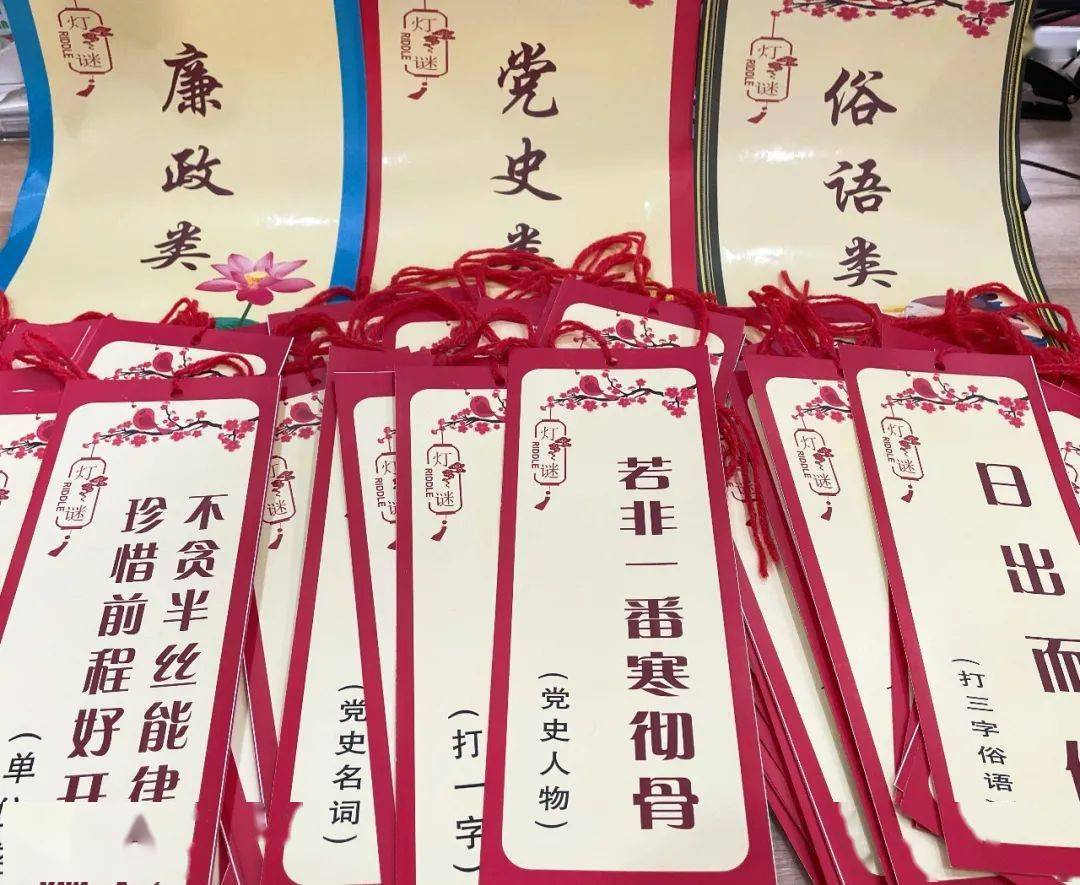 灯谜
RIDDLE
廉政类
灯谜
RIDDLE
党史类
灯谜
RIDDLE
俗语类
灯谜
RIDDLE
不贪半丝能律
珍惜前程好
灯谜
灯谜
RIDDLE
(党史名词)
灯谜
RIDDLE
(打一字)
灯谜
RIDDLE
若非一番寒彻骨
(党史人物)
灯谜
RIDDLE
灯谜
RIDDLE
日出而
(打三字俗语